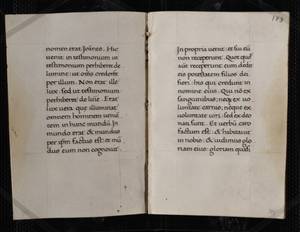 nomen erat Joĩnes. Hic
uenit in testimonium ut
testimonium perhiberet de
lumine: ut oĩs crederẽt
per illum. Non erat ille
lux: sed ut testimonium
perhiberet de lumĩe. Erat
lux uera que illuminat
omnem hominem ueniẽ
tem in hunc mundũ. In
mundo erat & mundus
per ipsũ factus est: et mũ
dus eum non cognouit.
In propria uenit: et sui eũ
non receperunt. Quot quot
aut receperunt eum dedit
eis potestatem filios dei
fieri: his qui credunt in
nomine eius. Qui nõ ex
sanguinibus: neq ex uo
luntate carnis: neque ex
uoluntate uiri: sed ex deo
nati sunt. Et uerbũ caro
factum est: & habitauit
in nobis: & uidimus glo
riam eius: gloriam quasi